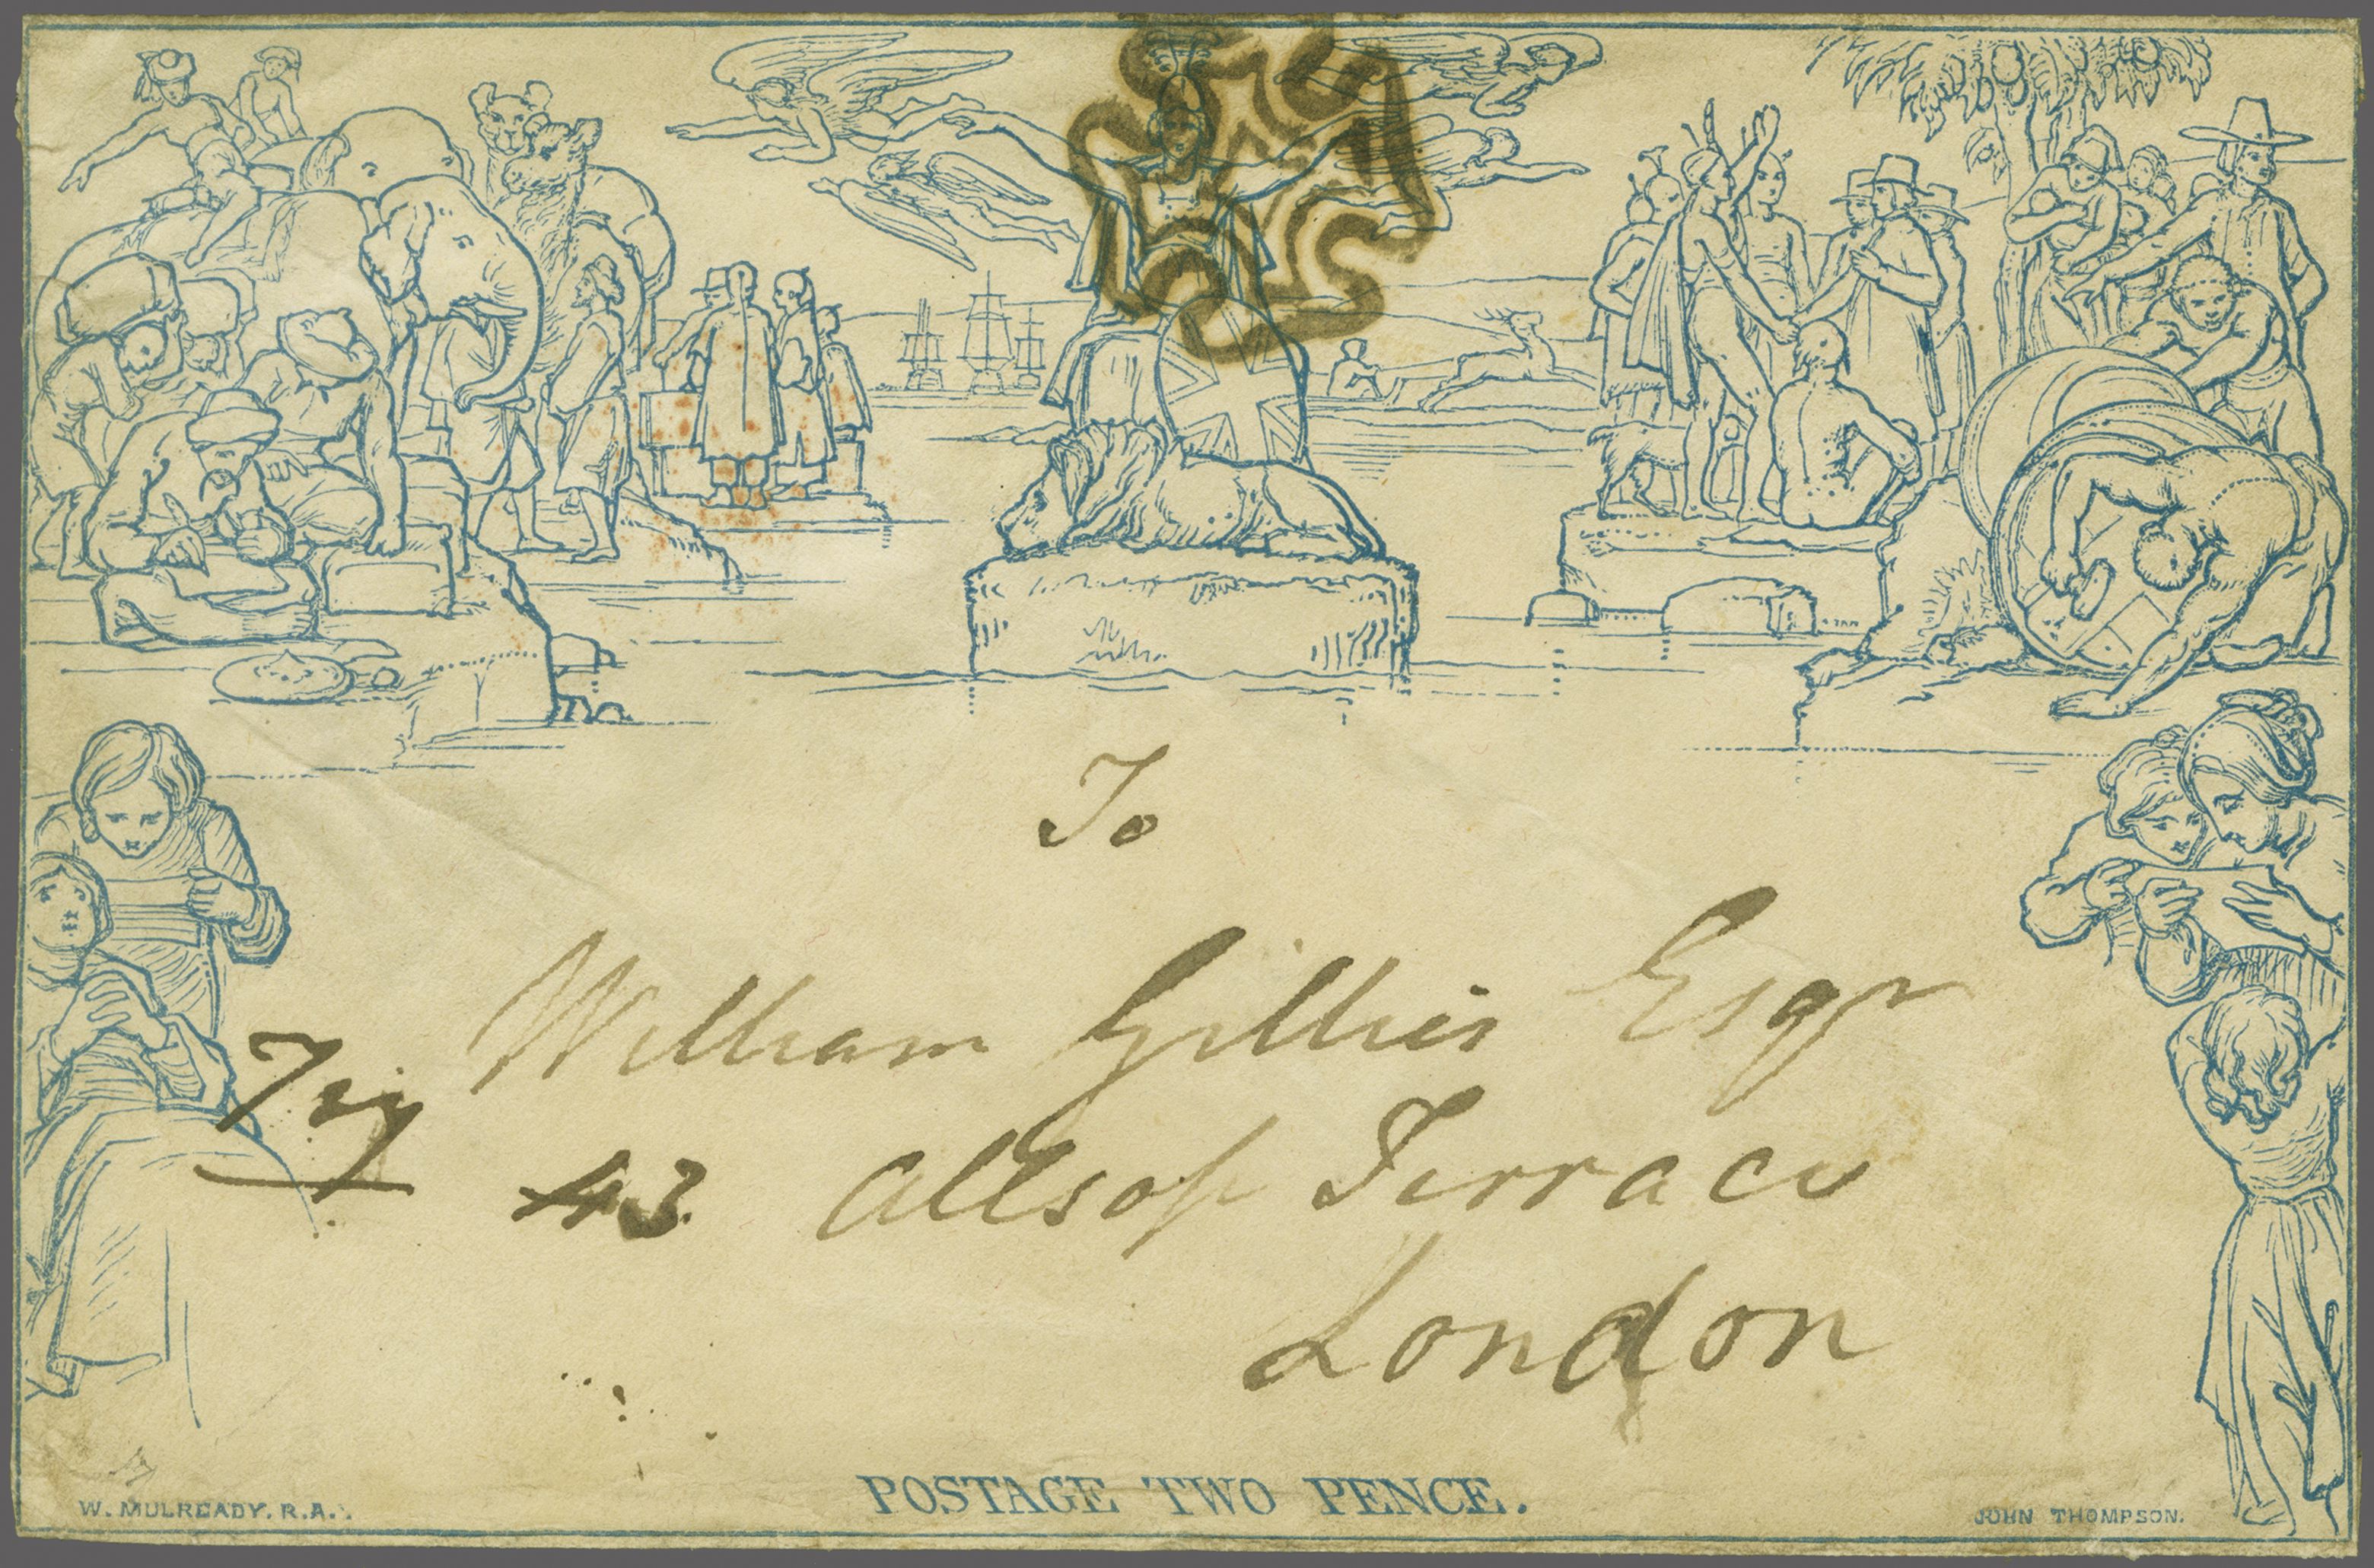 To
William Gillies Esqr
43 Allsop Terrace
London
POSTAGE TWO PENCE.
W. MULREADY. R.A.
JOHN THOMPSON.